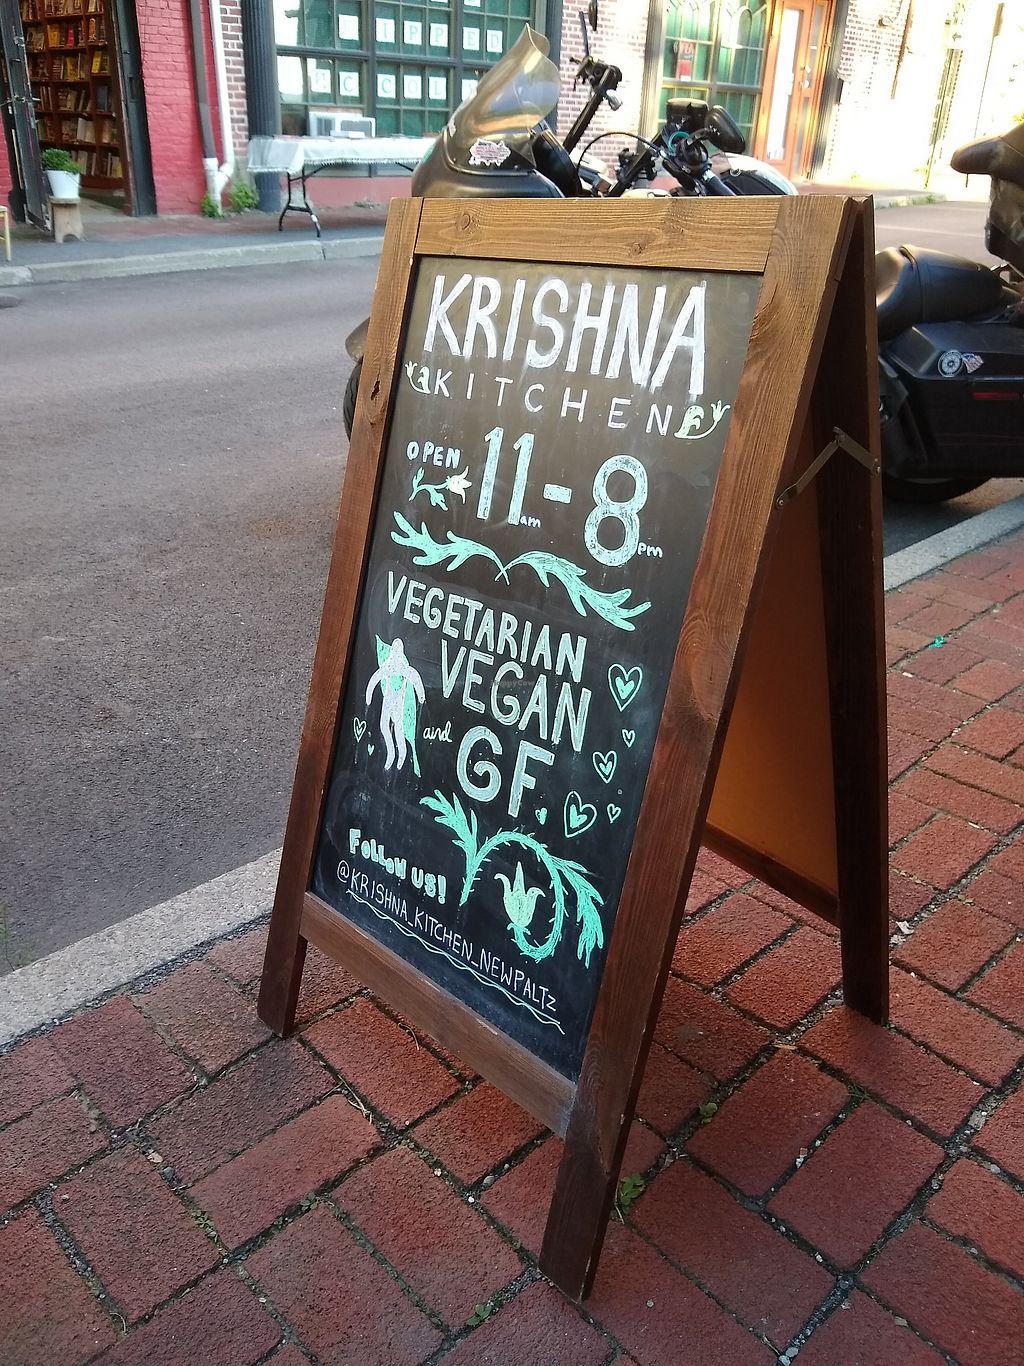 KRISHNA
KITCHEN
OPEN 11am - 8pm
VEGETARIAN
VEGAN
and GF
Follow us!
@KRISHNA_KITCHEN_NEWPALTZ